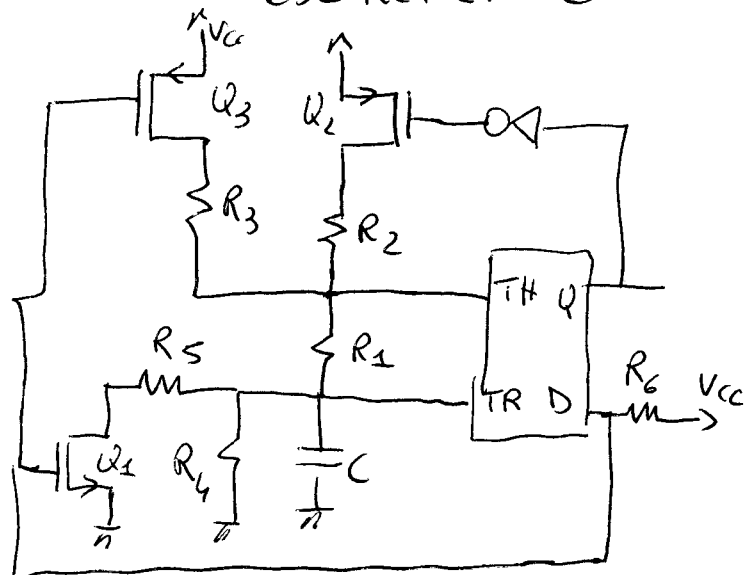 Vcc
Q3
Q2
R3
R2
TH Q
R5
R1
R6
Vcc
TR D
Q1
R4
C